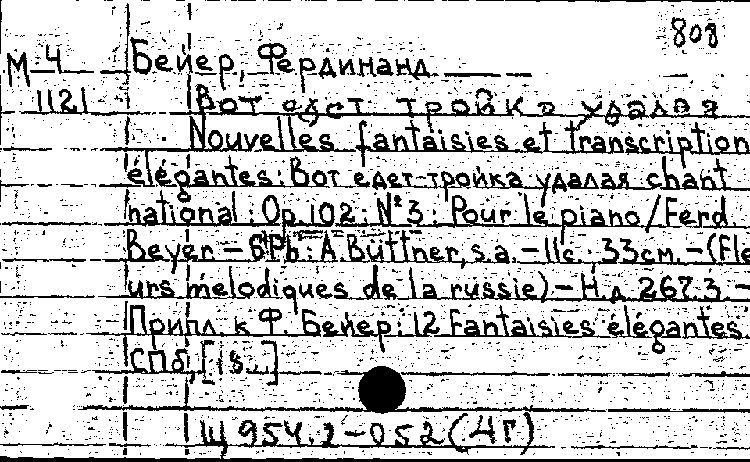 808
М 4 Бейер, Фердинанд.
1121 Вот едет тройка удалая
Nouvelles fantaisies et transcription
élégantes: Вот едет тройка удалая chant
national: Op.102: №3: Pour le piano/Ferd.
Beyer – СПb: A.Büttner, s.a. – 11с; 33см. – (Fle
urs mélodiques de la russie) – Н.д 267.3. –
Припл. к Ф. Бейер: 12 Fantaisies élégantes.
СПб, [18..]
Щ 954.2-052(4Г)